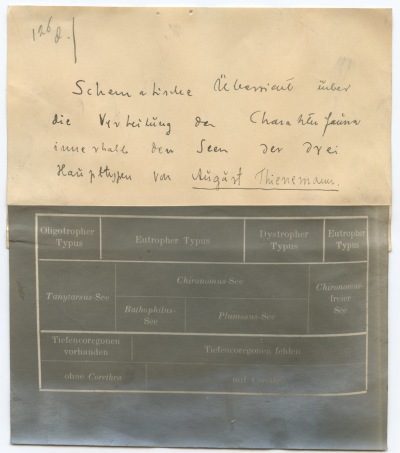 126 d.
Schematische Übersicht über
die Verteilung der Charakterfauna
innerhalb den Seen der drei
Haupttypen von August Thienemann.
Oligotropher Typus
Eutropher Typus
Dystropher Typus
Eutropher Typus
Tanytarsus-See
Chironomus-See
Chironomus-freier See
Bathophilus-See
Plumosus-See
Tiefencoregonen vorhanden
Tiefencoregonen fehlen
ohne Corethra
mit Corethra